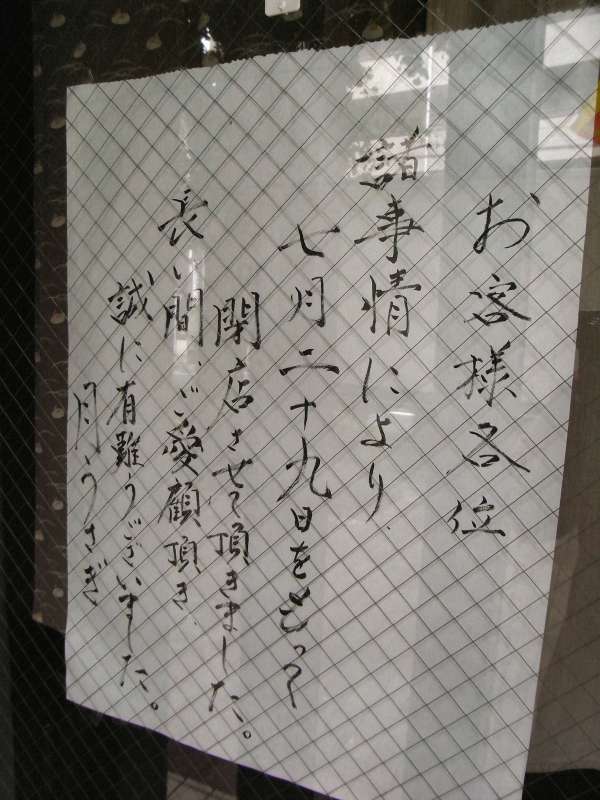 お客様各位
諸事情により、
七月二十九日をもって
閉店させて頂きました。
長い間、ご愛顧頂き、
誠に有難うございました。
月うさぎ